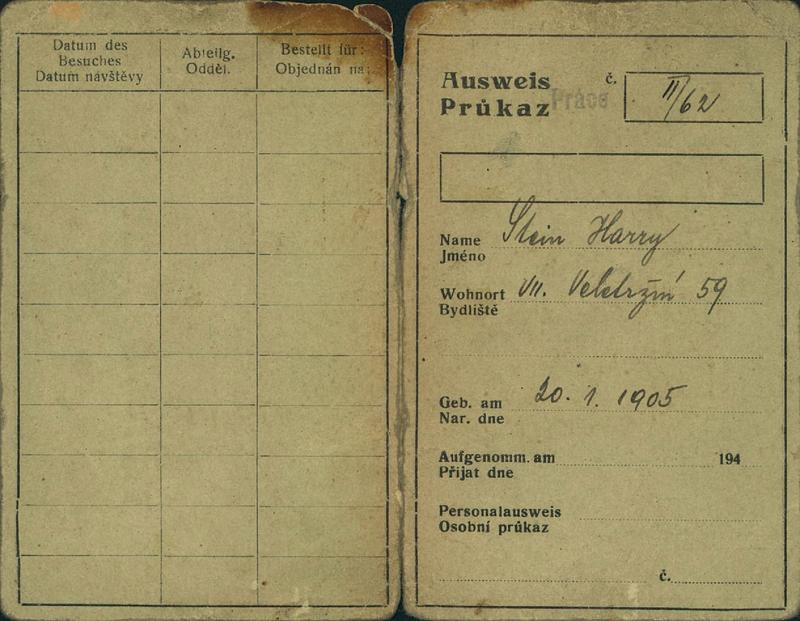 Datum des
Besuches
Datum návštěvy
Abteilg.
Odděl.
Bestellt für:
Objednán na:
Ausweis
Průkaz
Práce
č.
II/62
Name
Jméno
Stein Harry
Wohnort
Bydliště
VII. Veletržní 59
Geb. am
Nar. dne
20. 1. 1905
Aufgenomm. am 194
Přijat dne
Personalausweis
Osobní průkaz
č.